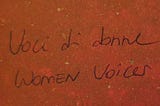 Voci di donne
WOMEN VOICES